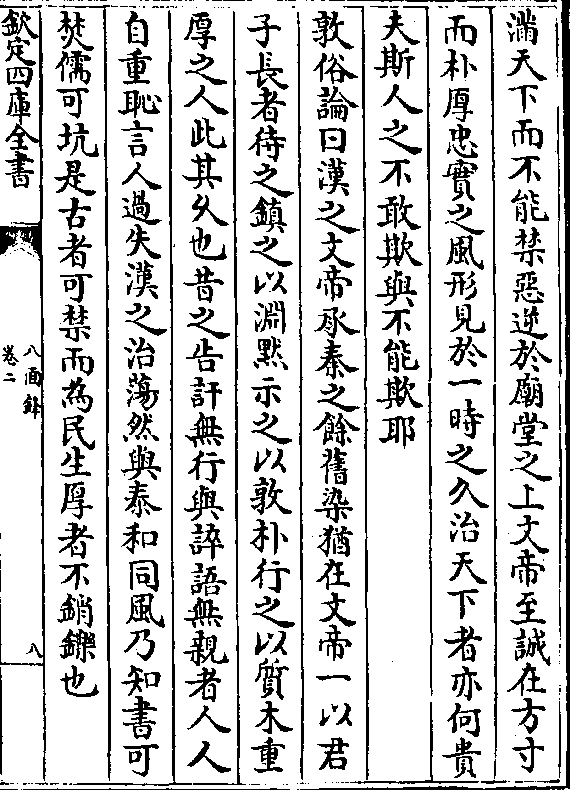 滿天下而不能禁惡逆於廟堂之上文帝至誠在方寸
而朴厚忠實之風形見於一時之久治天下者亦何貴
夫斯人之不敢欺與不能欺耶
敦俗論曰漢之文帝承秦之餘舊染猶在文帝一以君
子長者待之鎮之以淵黙示之以敦朴行之以質木重
厚之人此其久也昔之告訐無行與誶語無親者人人
自重恥言人過失漢之治蕩然與泰和同風乃知書可
焚儒可坑是古者可禁而為民生厚者不銷鑠也
欽定四庫全書
八面鋒
卷二
八